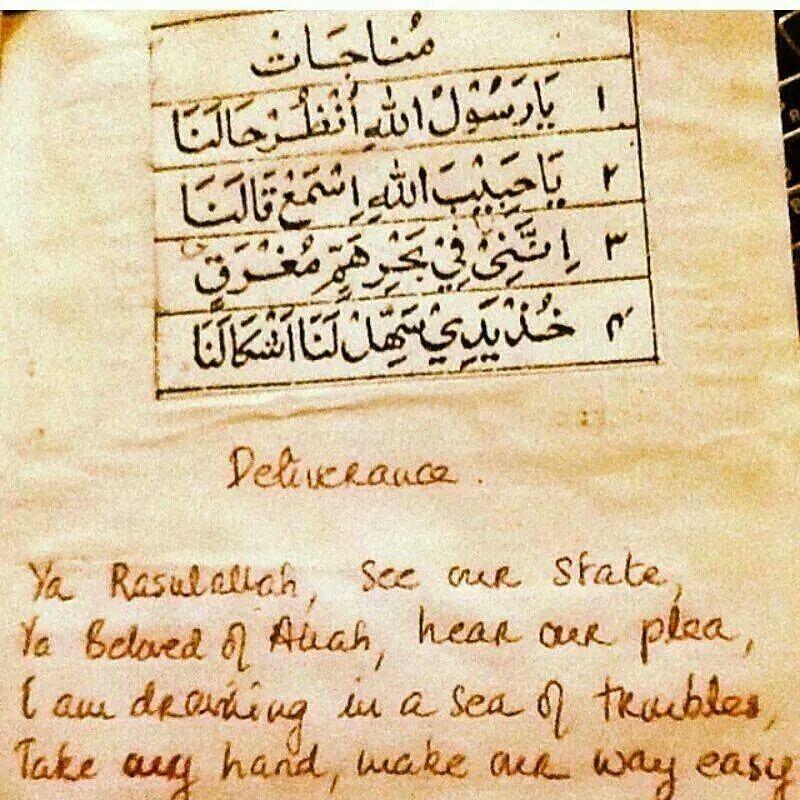 مُنَاجَات
١ يَا رَسُوْلَ اللهِ اُنْظُرْ حَالَنَا
٢ يَا حَبِيْبَ اللهِ اِسْمَعْ قَالَنَا
٣ اِنَّنِيْ فِيْ بَحْرِ هَمٍّ مُغْرَقٌ
۴ خُذْ يَدِيْ سَهِّلْ لَنَا اَشْكَالَنَا
Deliverance.
Ya Rasulallah, see our state,
Ya Beloved of Allah, hear our plea,
I am drowning in a sea of troubles,
Take my hand, make our way easy